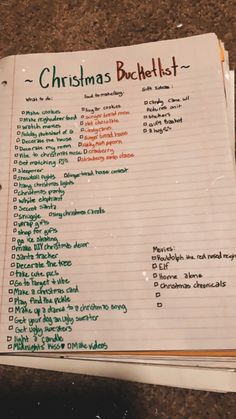 ~ Christmas Bucketlist ~
What to do:
□ Make cookies
□ Make neighborhood food
□ Watch movies
□ Decorate the house
□ Decorate my room
□ Vibe to christmas music
□ Get matching PJ's
□ Sleepover
□ Snowball fights
□ Gingerbread house contest
□ hang christmas lights
□ christmas party
□ White elephant
□ Secret santa
□ Snuggle
□ Sing christmas carols
□ Wrap gifts
□ Shop for gifts
□ go ice skating
□ make DIY christmas decor
□ Santa tracker
□ Decorate the tree
□ take cute pics
□ Go to Target + vibe
□ Make a christmas card
□ Play find the pickle
□ Make up a dance to a christmas song
□ Get your dog an ugly sweater
□ Get ugly sweaters
□ light a candle
□ Midnights kiss
□ Make videos
Food to make/buy:
□ Sugar cookies
□ Ginger bread men
□ Hot chocolate
□ Candy canes
□ Ginger bread house
□ Cranberry
Gift Ideas:
□ candy cane w/
pictures on it
□ stickers
□ gift basket
□ 8 hugs
Movies:
□ Roudolph the red nosed
□ Elf
□ Home alone
□ Christmas chronicals
□
□